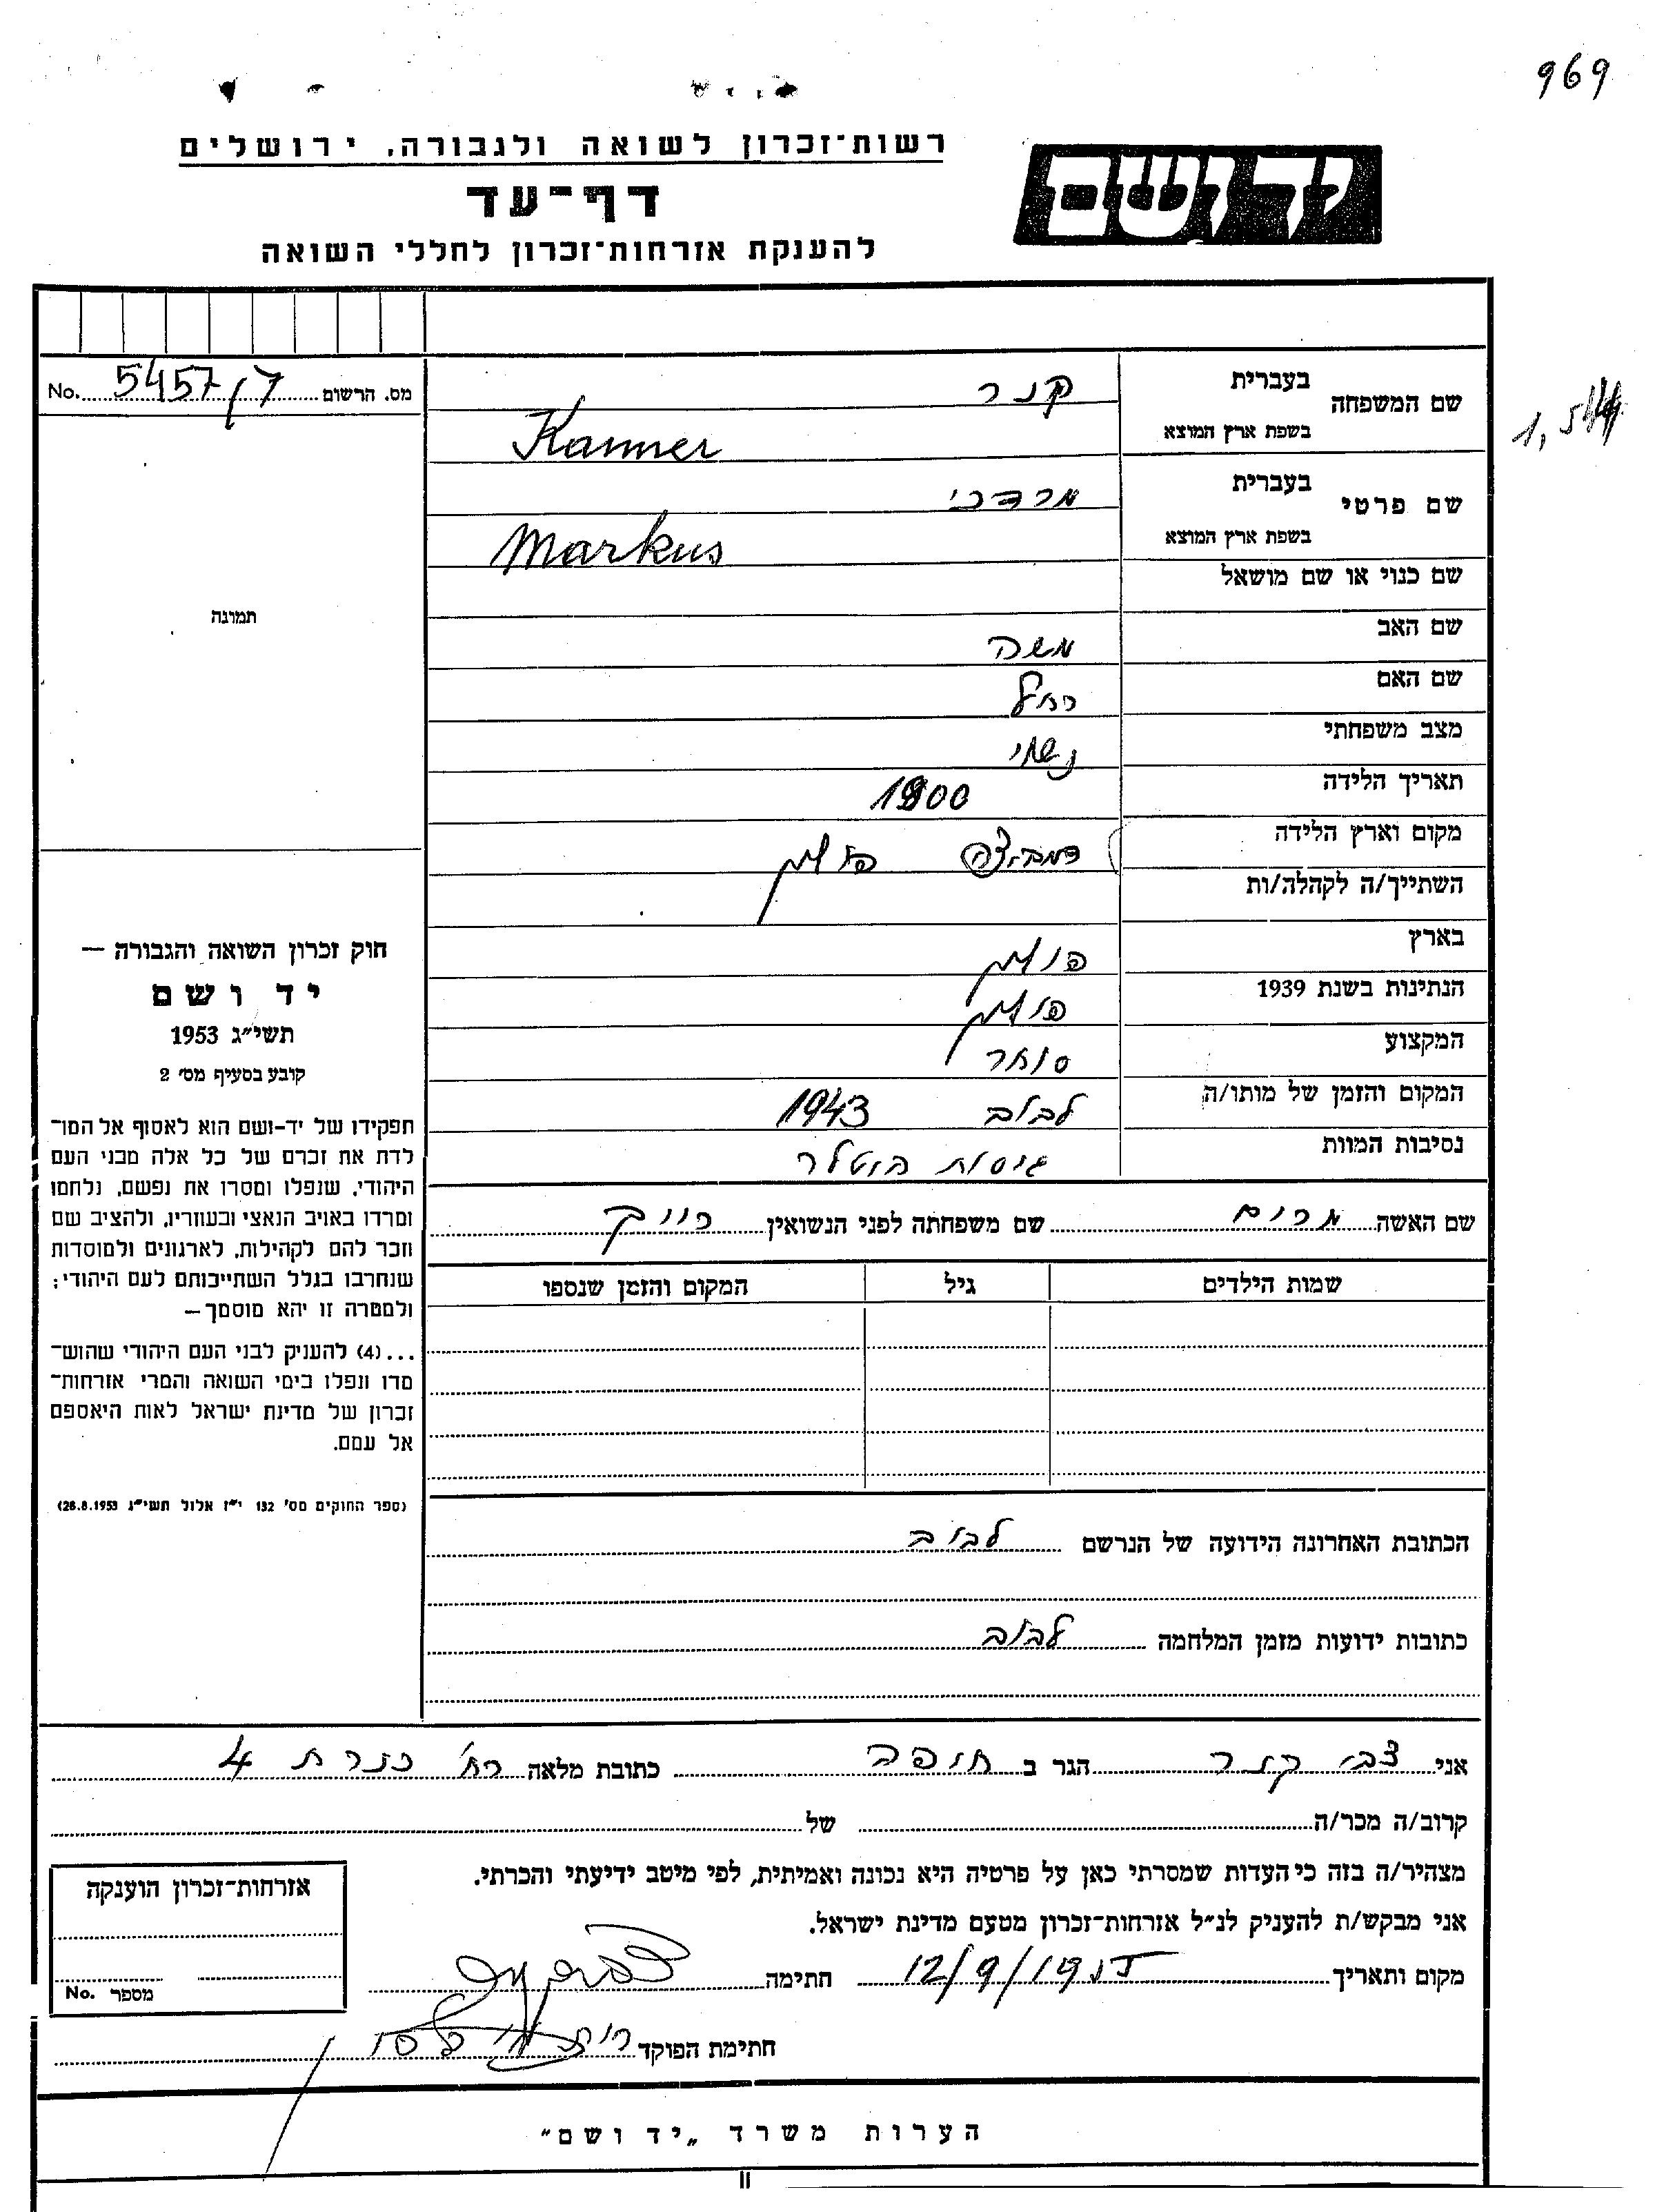 969
רשות־זכרון לשואה ולגבורה, ירושלים
יד ושם
דף־עד
להענקת אזרחות־זכרון לחללי השואה
מס. הרשום 5457/ No.
1,
שם המשפחה בעברית קנר
בשפת ארץ המוצא Kanner
שם פרטי בעברית מרדכי
בשפת ארץ המוצא Markus
שם כנוי או שם מושאל
שם האב משה
שם האם רחל
מצב משפחתי נשוי
תאריך הלידה 1900
מקום וארץ הלידה דמביצה פולין
השתייך/ה לקהלה/ות
בארץ פולין
הנתינות בשנת 1939 פולין
המקצוע סוחר
המקום והזמן של מותו/ה לבוב 1943
נסיבות המוות גיסות היטלר
שם האשה מרים שם משפחתה לפני הנשואין
שמות הילדים גיל המקום והזמן שנספו
הכתובת האחרונה הידועה של הנרשם לבוב
כתובות ידועות מזמן המלחמה לבוב
תמונה
חוק זכרון השואה והגבורה —
יד ושם
תשי״ג 1953
קובע בסעיף מס׳ 2
תפקידו של יד-ושם הוא לאסוף אל המו־
לדת את זכרם של כל אלה מבני העם
היהודי, שנפלו ומסרו את נפשם, נלחמו
ומרדו באויב הנאצי ובעוזריו, ולהציב שם
וזכר להם לקהילות, לארגונים ולמוסדות
שנחרבו בגלל השתייכותם לעם היהודי;
ולמטרה זו יהא מוסמך—
...(4) להעניק לבני העם היהודי שהוש־
מדו ונפלו בימי השואה והמרי אזרחות־
זכרון של מדינת ישראל לאות היאספם
אל עמם.
(ספר החוקים מס׳ 132 י״ז אלול תשי״ג 28.8.1953)
אני צבי קנר הגר ב חיפה כתובת מלאה רח׳ כנרת 4
קרוב/ה מכר/ה של
מצהיר/ה בזה כי העדות שמסרתי כאן על פרטיה היא נכונה ואמיתית, לפי מיטב ידיעתי והכרתי.
אני מבקש/ת להעניק לנ״ל אזרחות־זכרון מטעם מדינת ישראל.
מקום ותאריך 12/9/19 חתימה
חתימת הפוקד
אזרחות־זכרון הוענקה
מספר No.
הערות משרד „יד ושם״
II